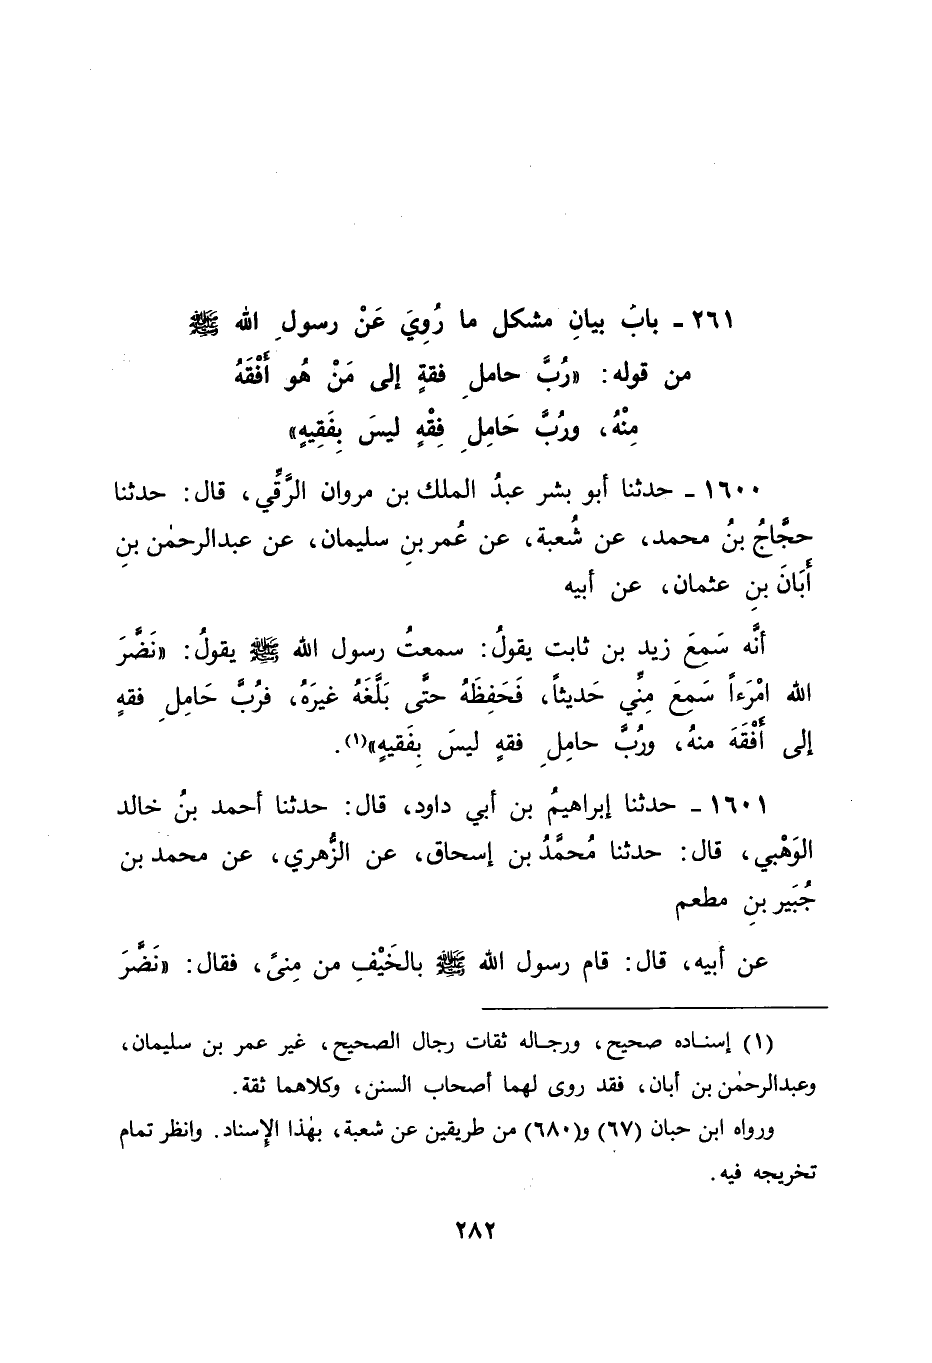 ٢٦١ - بابُ بيانِ مشكل ما رُوِيَ عَنْ رسولِ الله ﷺ
من قوله: «رُبَّ حاملِ فقهٍ إلى مَنْ هُو أَفْقَهُ
مِنْهُ، ورُبَّ حَامِلِ فِقْهٍ ليسَ بِفَقِيهٍ»
١٦٠٠ - حدثنا أبو بشر عبدُ الملك بن مروان الرَّقِّي، قال: حدثنا
حجَّاجُ بنُ محمد، عن شُعبة، عن عُمر بنِ سليمان، عن عبدالرحمٰن بنِ
أَبَانَ بنِ عثمان، عن أبيه
أنَّه سَمِعَ زيد بن ثابت يقولُ: سمعتُ رسول الله ﷺ يقولُ: «نَضَّرَ
الله امْرَءاً سَمِعَ مِنِّي حَديثاً، فَحَفِظَهُ حتَّى بَلَّغَهُ غيرَهُ، فرُبَّ حَامِلِ فقهٍ
إلى أَفْقَهَ منهُ، ورُبَّ حامِلِ فقهٍ ليسَ بِفَقيهٍ»(١).
١٦٠١ - حدثنا إبراهيمُ بن أبي داود، قال: حدثنا أحمد بنُ خالد
الوَهْبي، قال: حدثنا مُحمَّدُ بن إسحاق، عن الزُّهري، عن محمد بن
جُبَير بنِ مطعم
عن أبيه، قال: قام رسول الله ﷺ بالخَيْفِ من مِنىً، فقال: «نَضَّرَ
(١) إسناده صحيح، ورجاله ثقات رجال الصحيح، غير عمر بن سليمان،
وعبدالرحمٰن بن أبان، فقد روى لهما أصحاب السنن، وكلاهما ثقة.
ورواه ابن حبان (٦٧) و(٦٨٠) من طريقين عن شعبة، بهٰذا الإسناد. وانظر تمام
تخريجه فيه.
٢٨٢